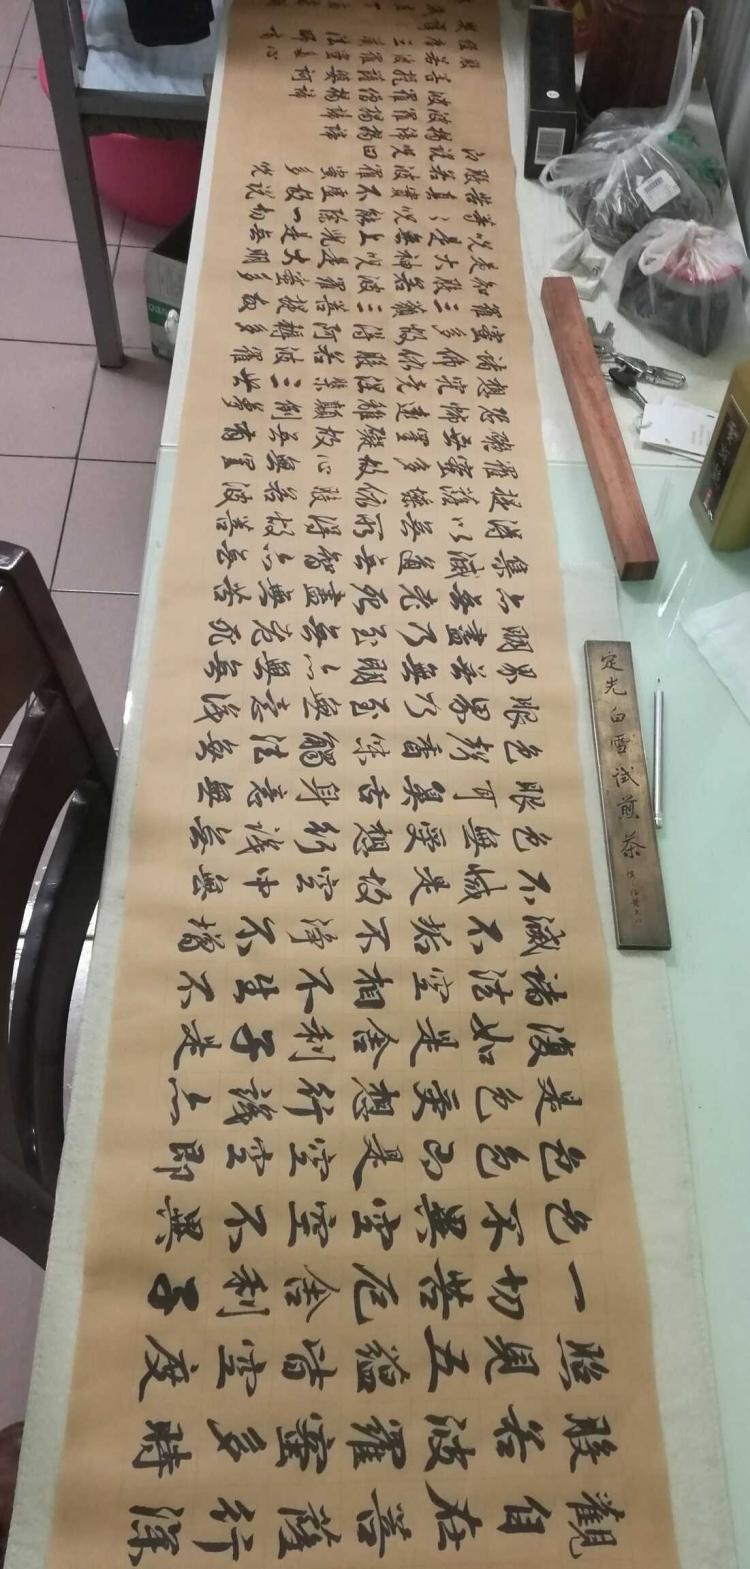 觀自在菩薩行深
般若波羅蜜多時
照見五蘊皆空度
一切苦厄舍利子
色不異空空不異
色色即是空空即
是色受想行識亦
復如是舍利子是
諸法空相不生不
滅不垢不淨不增
不減是故空中無
色無受想行識無
眼耳鼻舌身意無
色聲香味觸法無
眼界乃至無意識
界無無明亦無無
明盡乃至無老死
亦無老死盡無苦
集滅道無智亦無
得以無所得故菩
提薩埵依般若波
羅蜜多故心無罣
礙無罣礙故無有
恐怖遠離顛倒夢
想究竟涅槃三世
諸佛依般若波羅
蜜多故得阿耨多
羅三藐三菩提故
知般若波羅蜜多
是大神咒是大明
咒是無上咒是無
等等咒能除一切
苦真實不虛故說
般若波羅蜜多咒
即說咒曰
定光白雪試煎茶